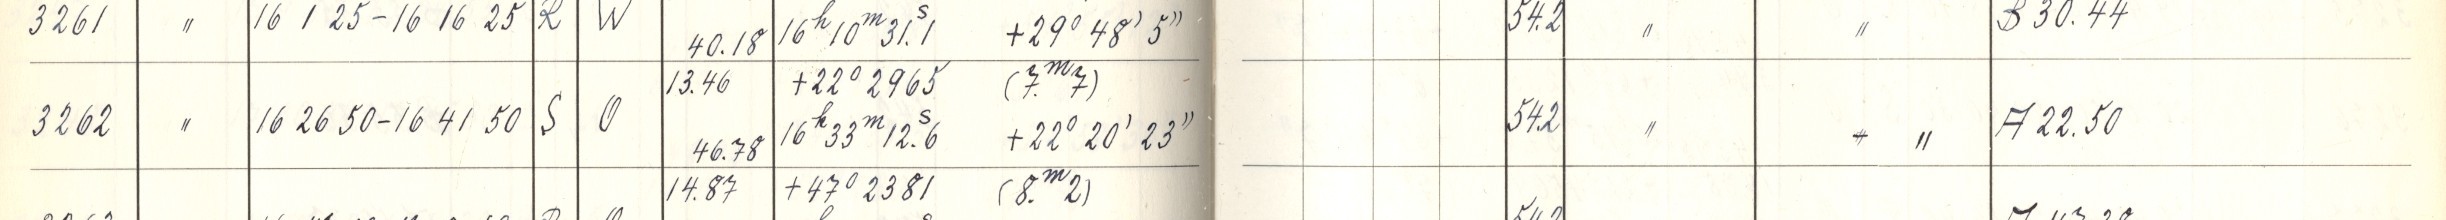 3261 " 16 1 25-16 16 25 R W 40.18 16h 10m 31s.1 +29° 48' 5" 54.2 " " B 30.44
13.46 +22° 2965 (7.m7)
3262 " 16 26 50-16 41 50 S O 46.78 16h 33m 12s.6 +22° 20' 23" 54.2 " " A 22.50
14.87 +47° 2381 (8.m2)